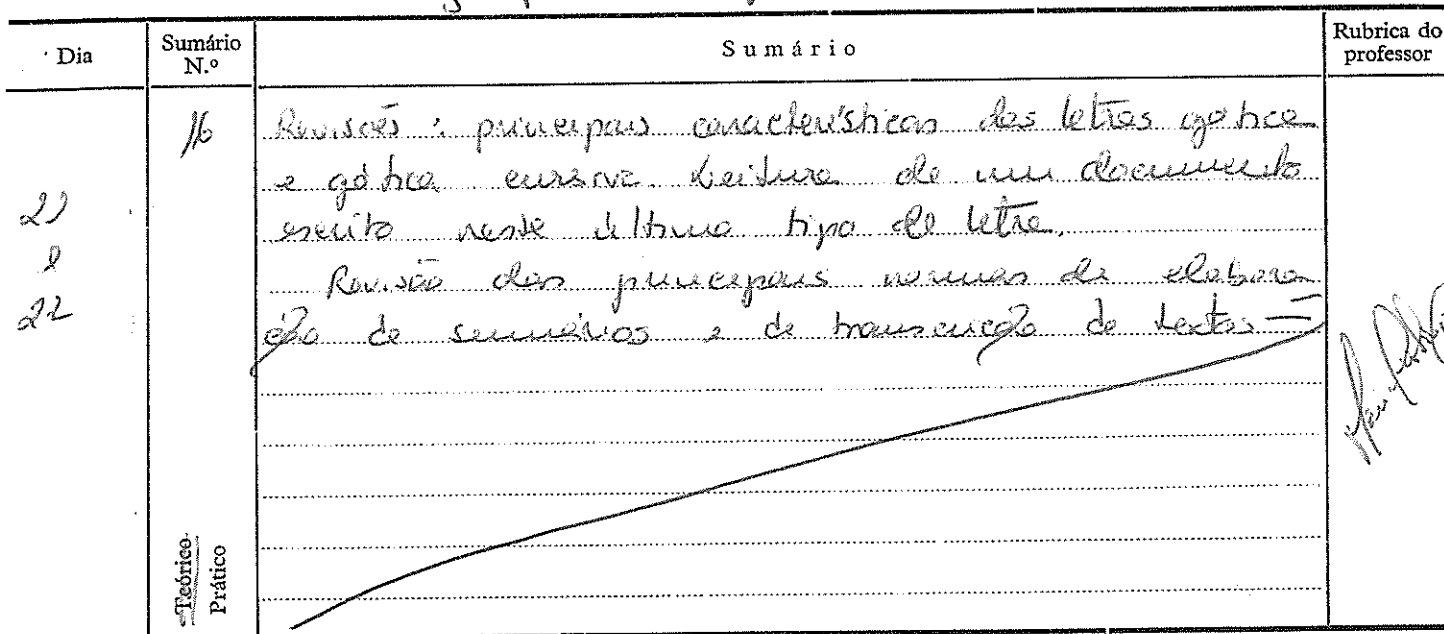 Dia
Sumário N.º
Sumário
Rubrica do professor
16
Revisões: principais características das letras gótica
e gótica cursiva. Leitura de um documento
21
escrito neste último tipo de letra.
e
Revisão das principais normas de elabora
22
ção de sumários e de transcrição de textos
Teórico
Prático